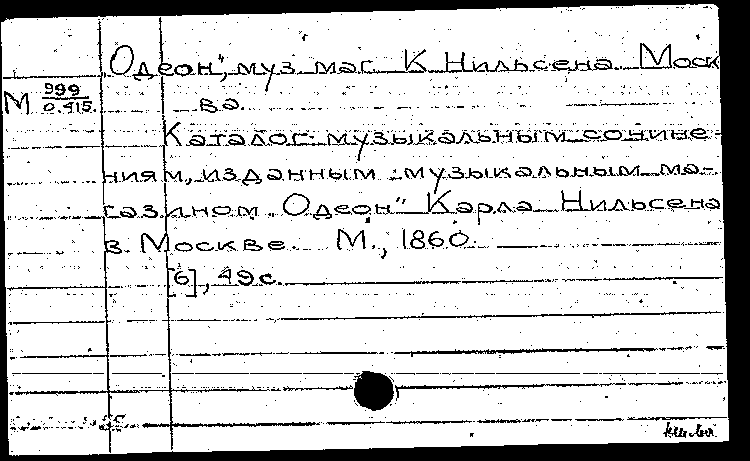 „Одеон", муз. маг. К. Нильсена. Моск
М 999
0.415.
ва.
Каталог музыкальным сочине-
ниям, изданным музыкальным ма-
газином „Одеон" Карла Нильсена
в Москве. М., 1860.
[6], 49 с.